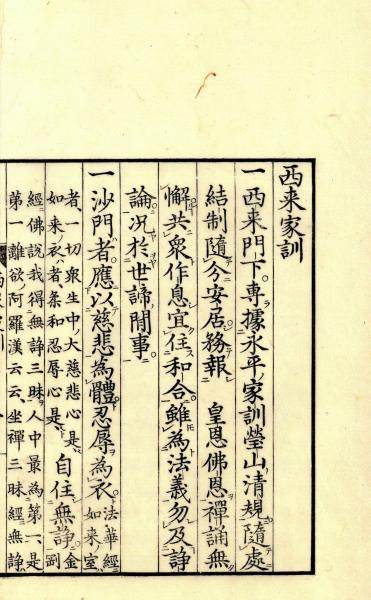 西来家訓
一西来門下專據永平家訓瑩山清規隨處
結制隨分安居務報　皇恩佛恩禪誦無
懈共衆作息宜住和合雖爲法義勿及諍
論況於世諦閒事
一沙門者應以慈悲爲體忍辱爲衣法華經如来室
者一切衆生中大慈悲心是如来衣者柔和忍辱心是自住無諍金剛
經佛說我得無諍三昧人中最爲第一是
第一離欲阿羅漢云云坐禪三昧經無諍